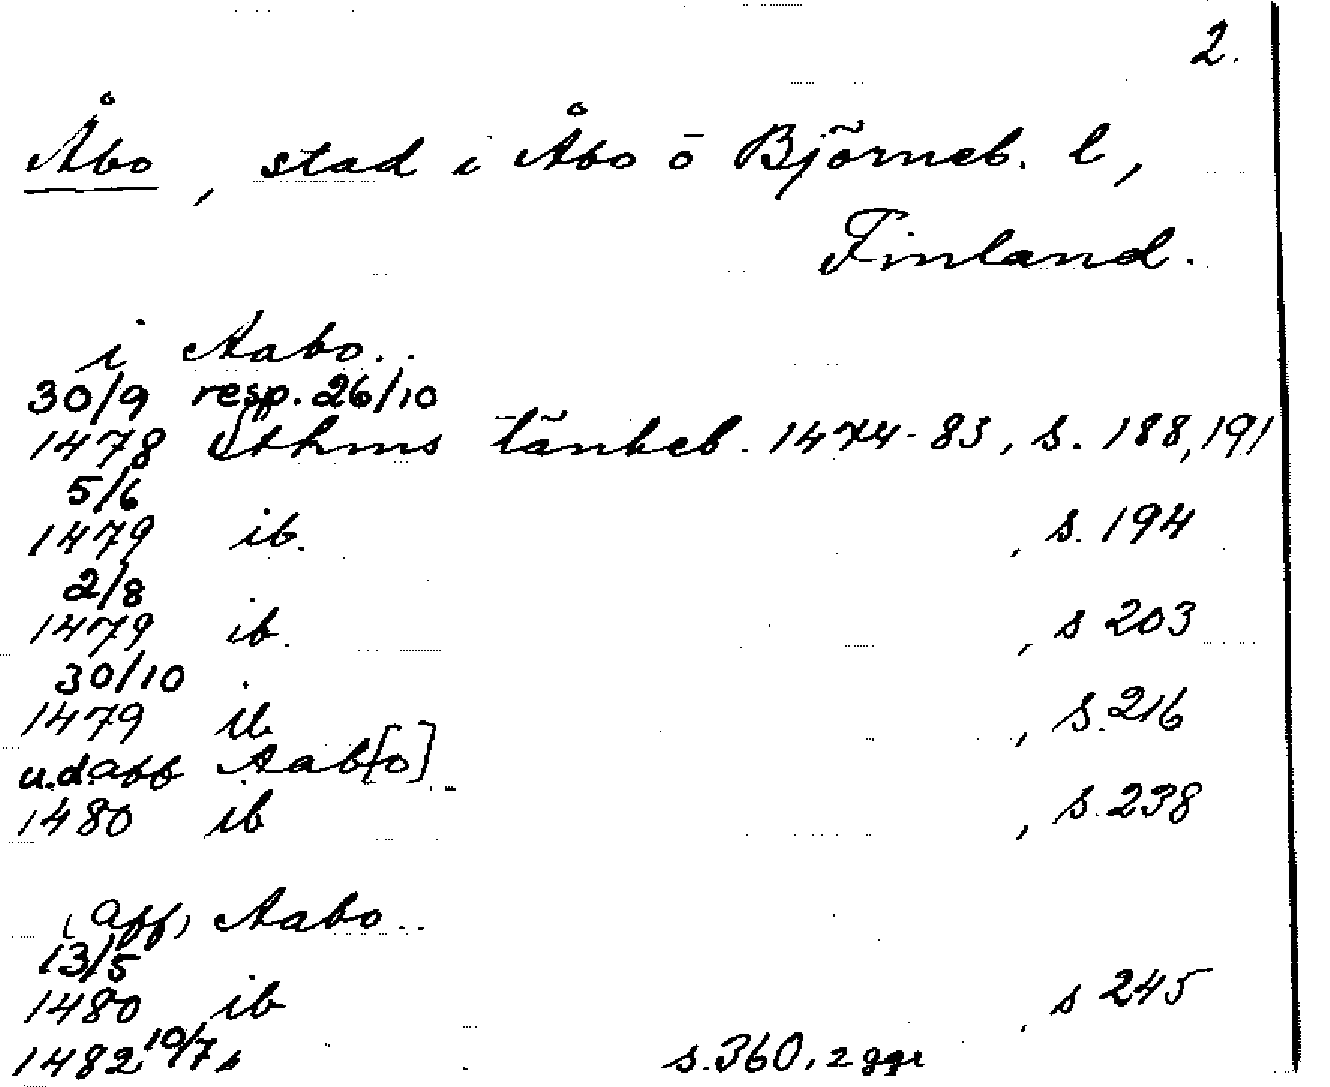 2.
Åbo, stad i Åbo ō Björneb. l,
Finland.
i Aabo..
30/9 resp. 26/10
1478 Sthms tänkeb. 1474-83, s. 188, 191
5/6
1479 ib. , s. 194
2/8
1479 ib. , s 203
30/10
1479 ib , s. 216
u.d. aff Aab[o]
1480 ib , s. 238
(aff) Aabo..
13/5
1480 ib , s 245
1482 10/7 s. 360, 2 ggr